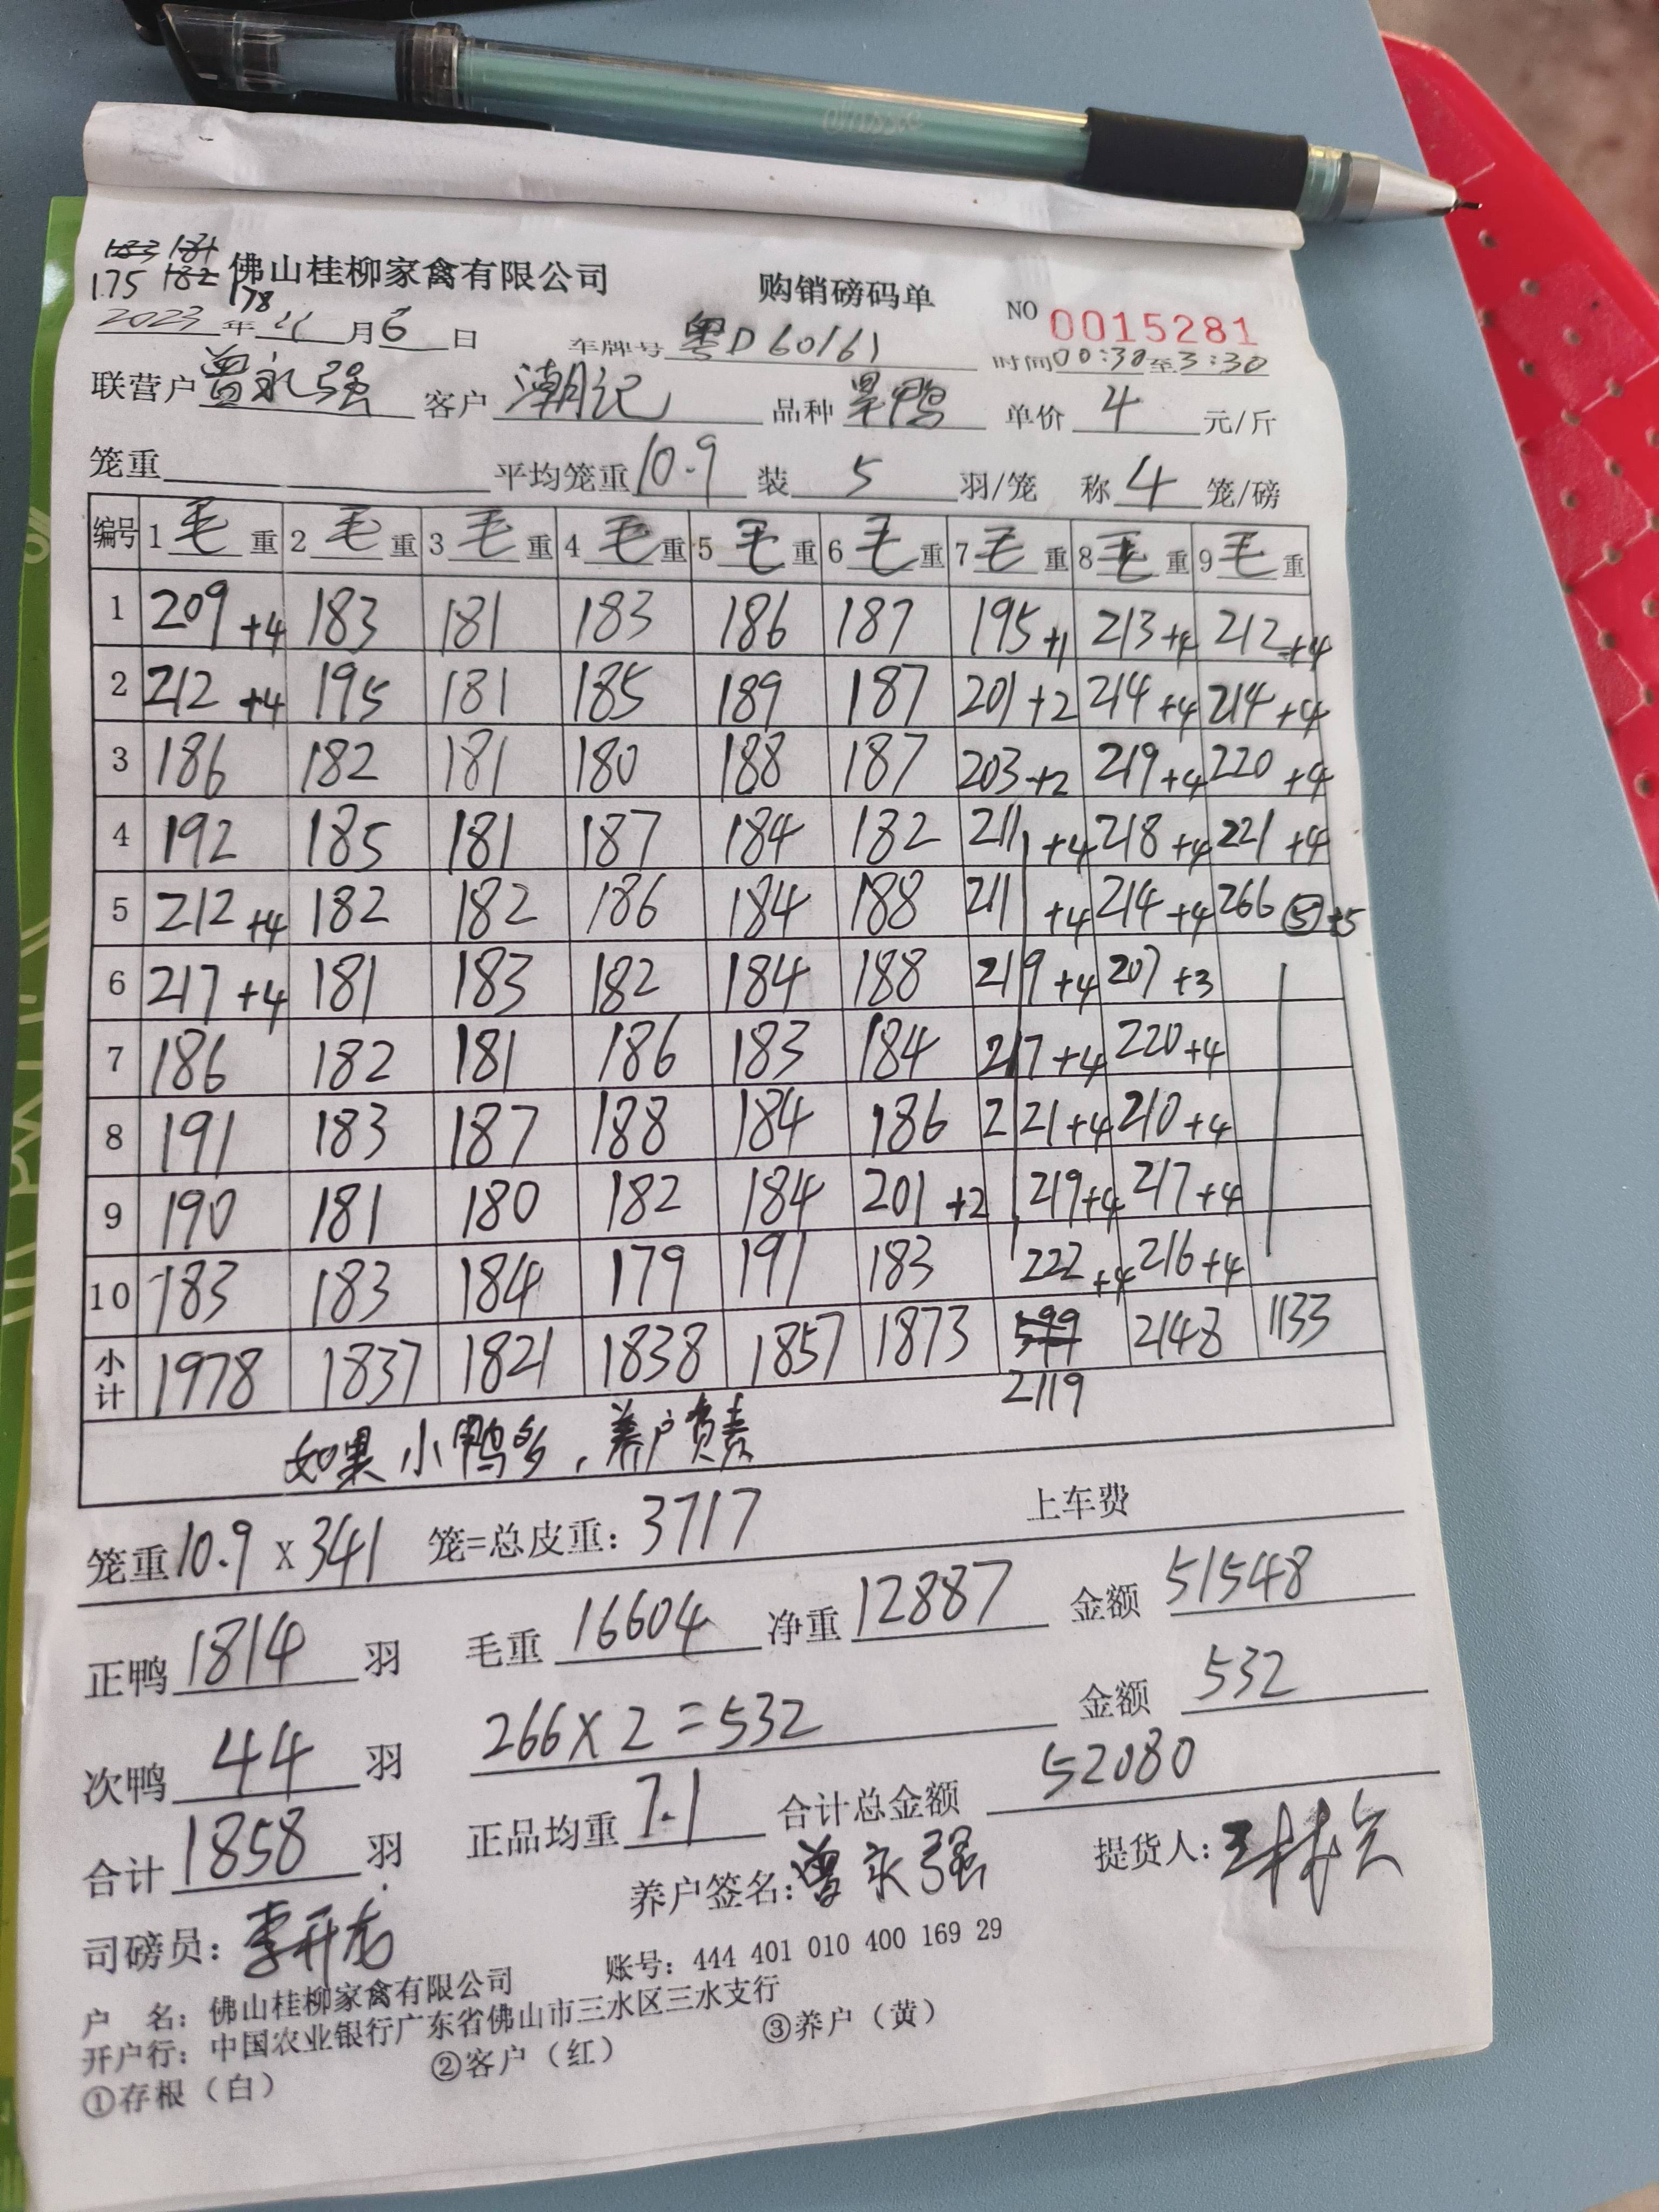 183 181
175 182 佛山桂柳家禽有限公司 购销磅码单 NO 0015281
178
2023年11月6日 车牌号 粤D60161 时间00:30至3:30
联营户 曾永强 客户 潮记 品种 旱鸭 单价 4 元/斤
笼重 平均笼重 10.9 装 5 羽/笼 称 4 笼/磅
编号 1毛重 2毛重 3毛重 4毛重 5毛重 6毛重 7毛重 8毛重 9毛重
1 209+4 183 181 183 186 187 195+1 213+4 212+4
2 212+4 195 181 185 189 187 201+2 214+4 214+4
3 186 182 181 180 188 187 203+2 219+4 220+4
4 192 185 181 187 184 182 211+4 218+4 221+4
5 212+4 182 182 186 184 188 211+4 214+4 266⑤+5
6 217+4 181 183 182 184 188 219+4 207+3
7 186 182 181 186 183 184 217+4 220+4
8 191 183 187 188 184 186 221+4 210+4
9 190 181 180 182 184 201+2 219+4 217+4
10 183 183 184 179 191 183 222+4 216+4
小计 1978 1837 1821 1838 1857 1873 599 2148 1133
2119
如果小鸭多,养户负责
笼重10.9 X 341 笼=总皮重: 3717 上车费
正鸭 1814 羽 毛重 16604 净重 12887 金额 51548
次鸭 44 羽 266×2=532 金额 532
合计 1858 羽 正品均重 7.1 合计总金额 52080
司磅员: 李开 养户签名: 曾永强 提货人:
户 名: 佛山桂柳家禽有限公司 账号: 444 401 010 400 169 29
开户行: 中国农业银行广东省佛山市三水区三水支行
①存根(白) ②客户(红) ③养户(黄)